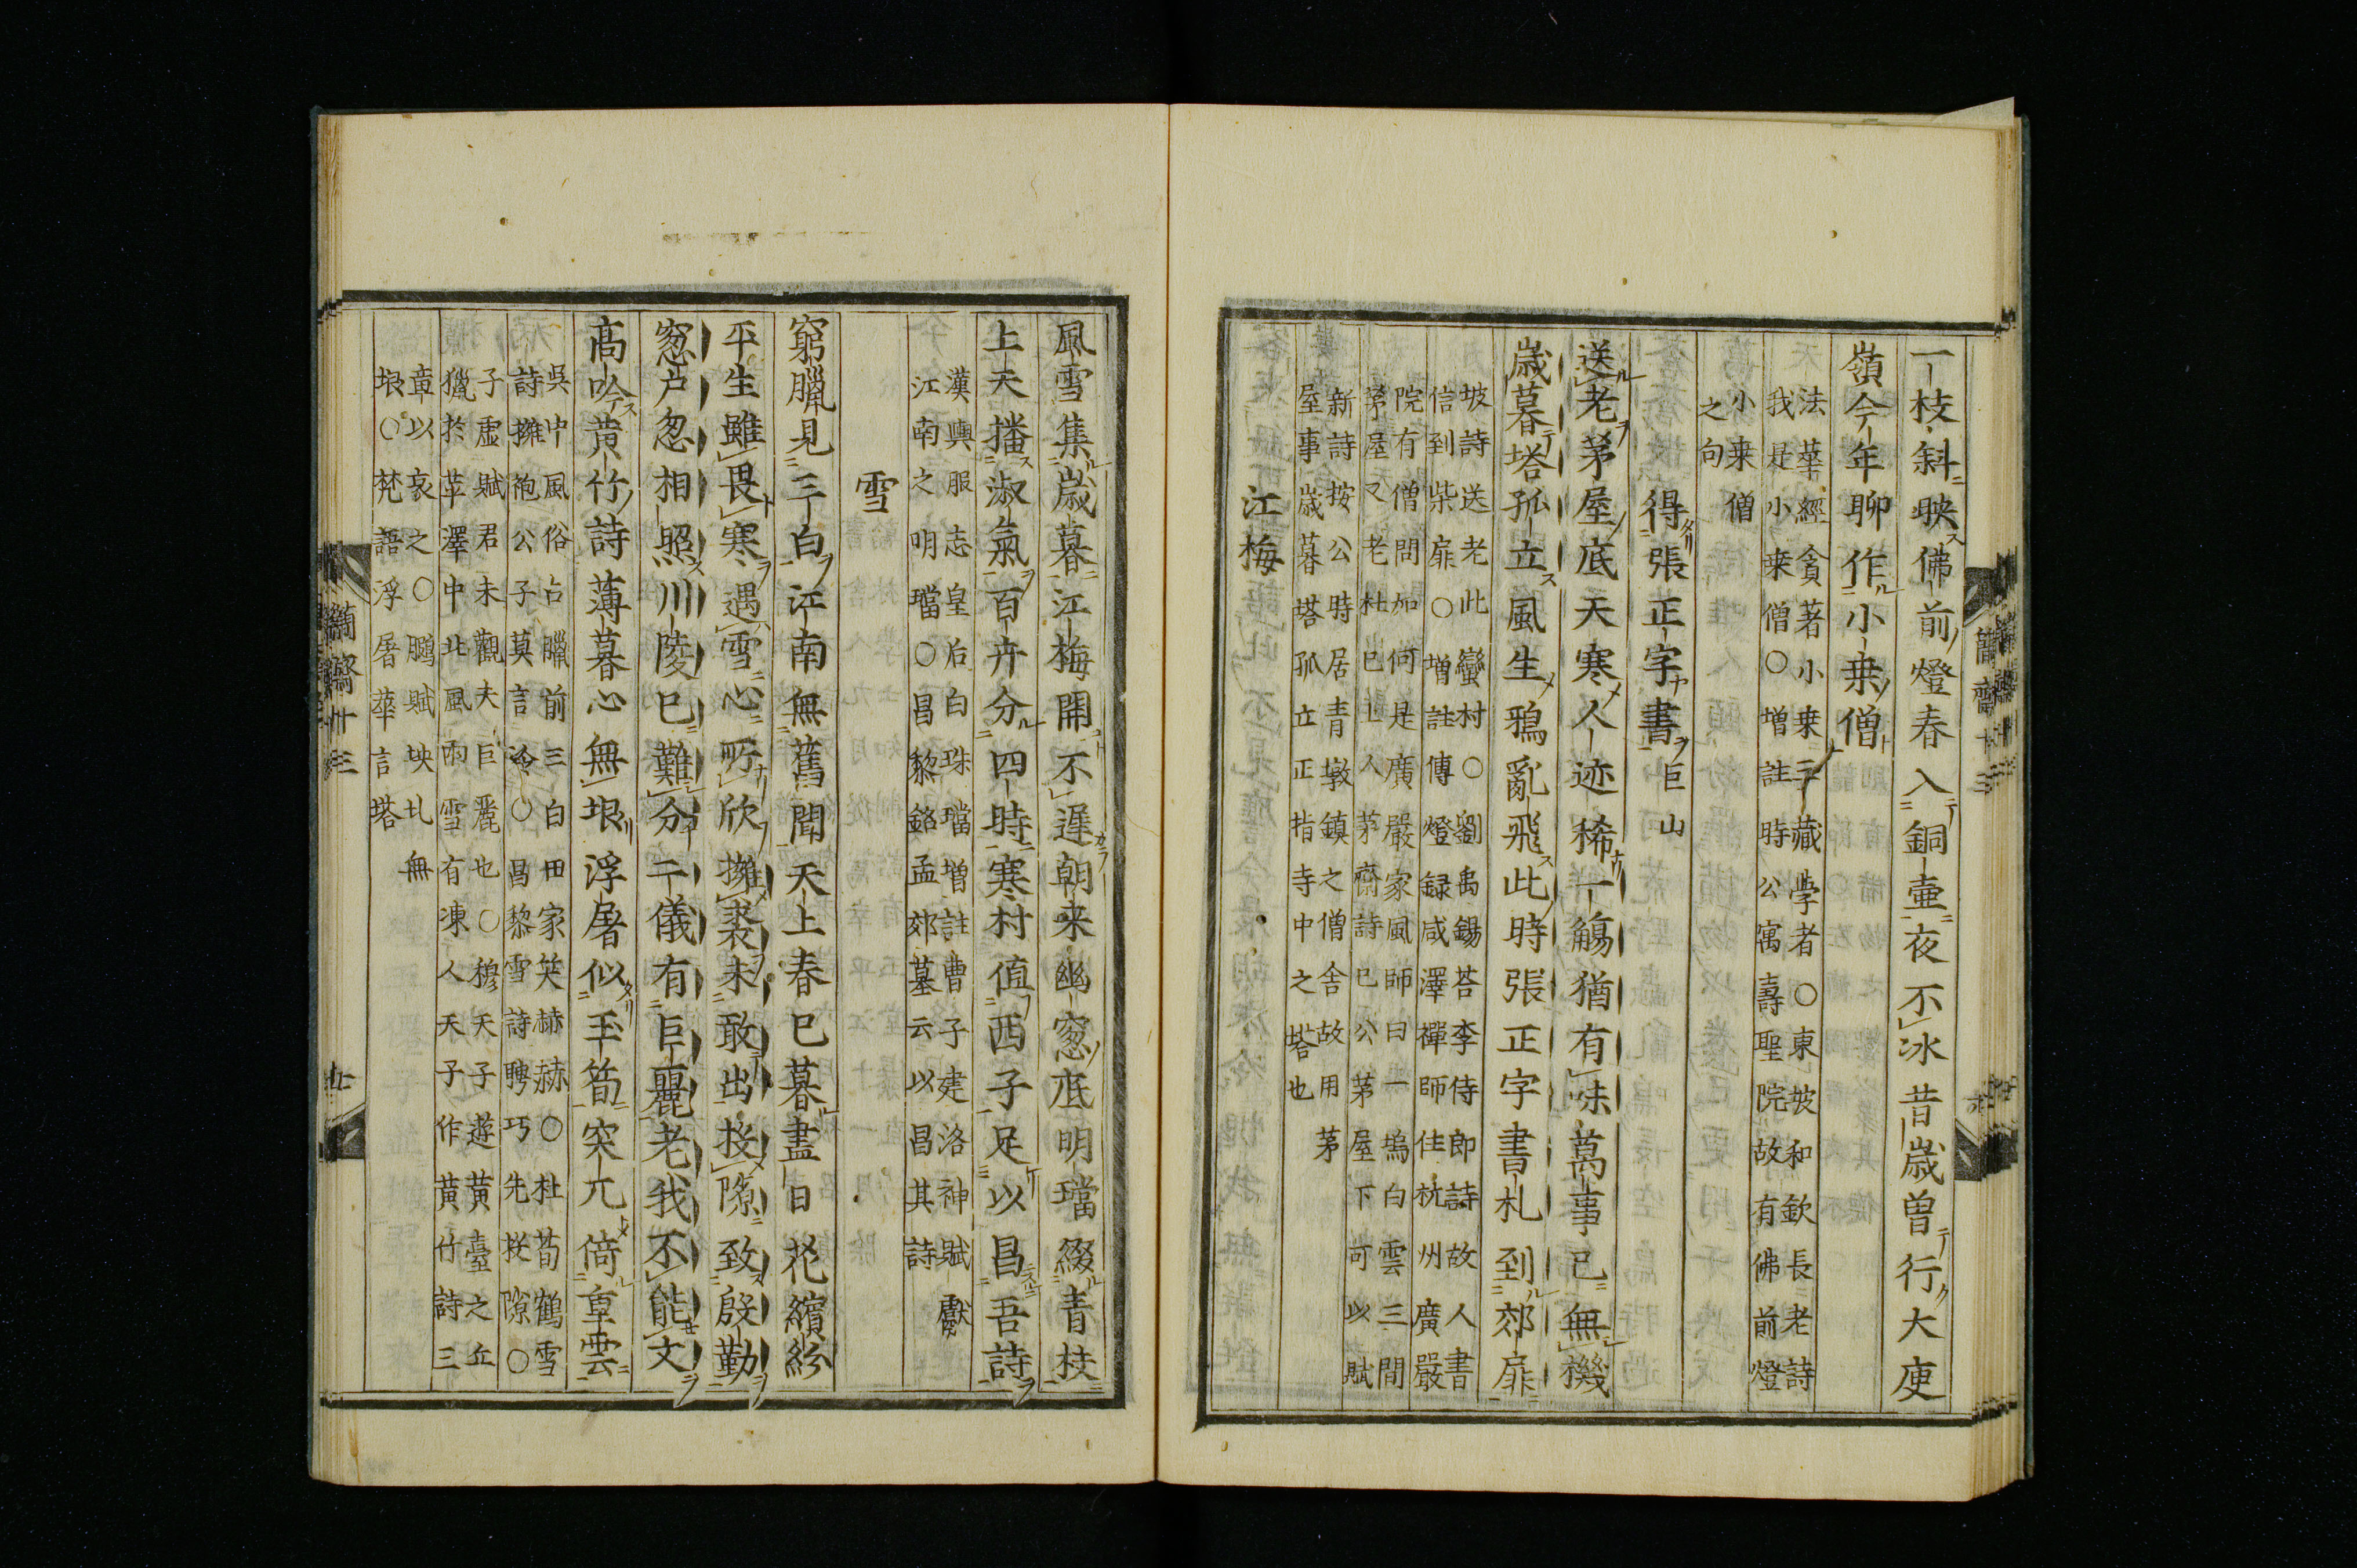 一枝斜映佛前燈春入銅壷夜不冰昔歳曽行大庾
嶺今年聊作小乗僧
法華經貪著小乗三藏學者○東坡和欽長老詩
我是小乗僧○増註時公寓壽聖院故有佛前燈
小乗僧
之句
得張正字書巨山
送老茅屋底天寒人迹稀一觴猶有味萬事已無機
歳暮塔孤立風生鴉亂飛此時張正字書札到郊扉
坡詩送老此蠻村○劉禹錫荅李侍郎詩故人書
信到柴扉○増註傳燈録咸澤禪師住杭州廣嚴
院有僧問如何是廣嚴家風師曰一塢白雲三間
茅屋又老杜巳上人茅齋詩巳公茅屋下可以賦
新詩按公時居青墩鎮之僧舎故用茅
屋事歳暮塔孤立正指寺中之塔也
江梅
風雪集歳暮江梅開不遅朝来幽窓底明璫綴青枝
上天播淑氣百卉分四時寒村値西子足以昌吾詩
漢輿服志皇后白珠璫増註曹子建洛神賦獻
江南之明璫○昌黎銘孟郊墓云以昌其詩
雪
窮臘見三白江南無舊聞天上春已暮盡日花繽紛
平生雖畏寒遇雪心所欣擁裘未敢出挍隙致殷勤
窓戸忽相照川陵已難分二儀有巨麗老我不能文
髙吟黄竹詩薄暮心無垠浮屠似玉筍突兀倚重雲
呉中風俗占臘前三白田家笑赫赫○杜荀鶴雪
詩擁袍公子莫言冷○昌黎雪詩騁巧先投隙○
子虚賦君未觀夫巨麗也○穆天子遊黄臺之丘
獵於苹澤中北風雨雪有凍人天子作黄竹詩三
章以哀之○鵩賦坱圠無
垠○梵語浮屠華言塔